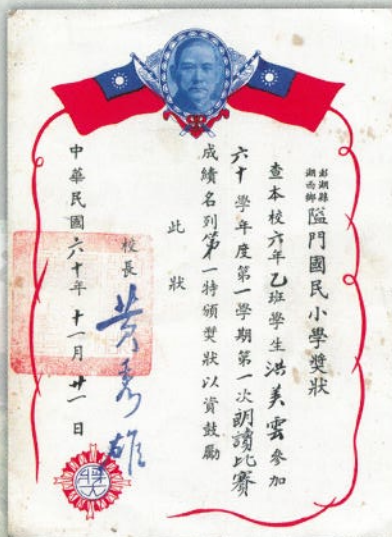 澎湖縣
湖西鄉
隘門國民小學獎狀
查本校六年乙班學生洪美雲參加
六十學年度第一學期第一次朗讀比賽
成績名列第一特頒獎狀以資鼓勵
此狀
校長 黃秀雄
中華民國六十年十一月廿一日